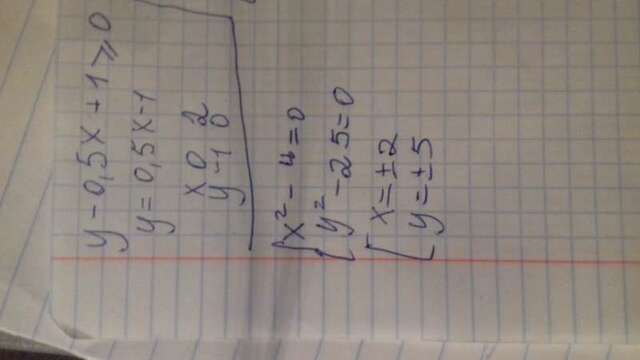 y - 0,5x + 1 ⩾ 0
y = 0,5x - 1
x 0 2
y -1 0
x² - 4 = 0
y² - 25 = 0
x = ±2
y = ±5